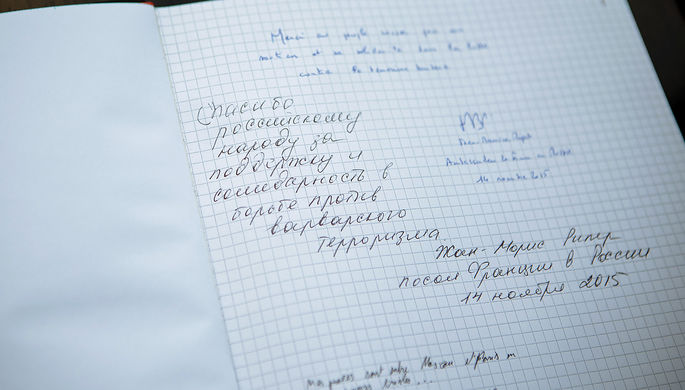 Merci au peuple russe pour son
soutien et sa solidarité dans la lutte
contre le terrorisme barbare
Спасибо
российскому
народу за
поддержку и
солидарность в
борьбе против
варварского
терроризма
Jean-Maurice Ripert
Ambassadeur de France en Russie
14 novembre 2015
Жан-Морис Рипер
посол Франции в России
14 ноября 2015
Moscou